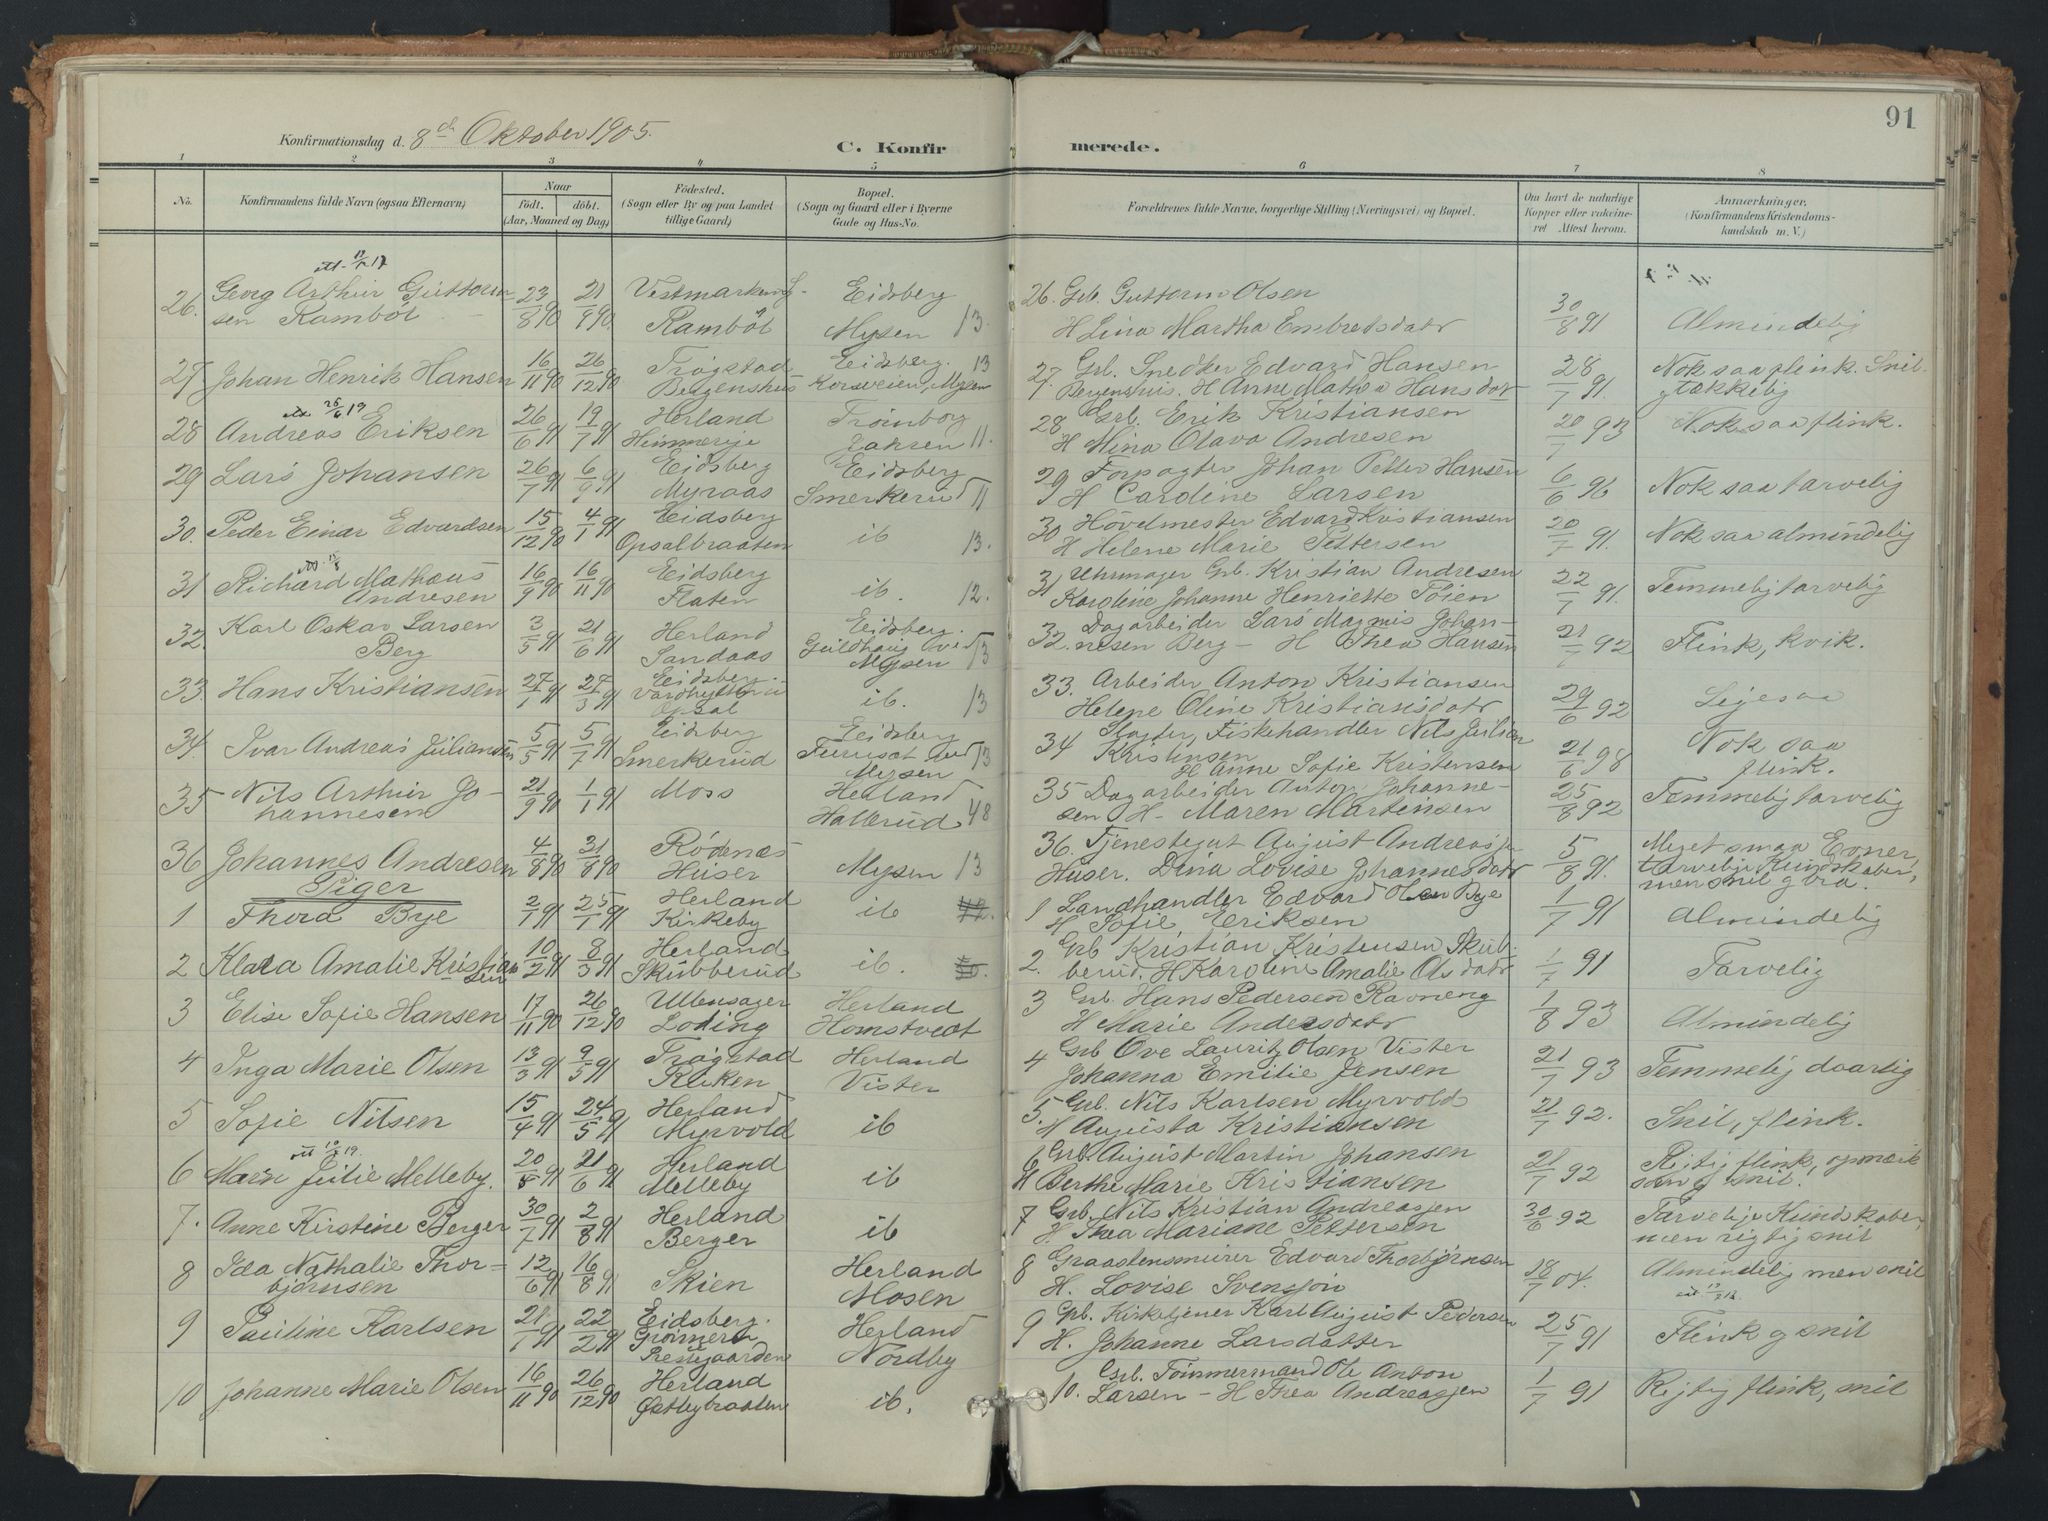 91
Konfirmationsdag d. 8de Oktober 1905.
C. Konfirmerede.
1 2 3 4 5 6 7 8
No.
Konfirmandens fulde Navn (ogsaa Efternavn)
Naar
födt. döbt.
(Aar, Maaned og Dag)
Födested.
(Sogn eller By og paa Landet
tillige Gaard)
Bopæl.
(Sogn og Gaard eller i Byerne
Gade og Hus-No.
Forældrenes fulde Navne, borgerlige Stilling (Næringsvei) og Bopæl.
Om havt de naturlige
Kopper eller vakcine-
ret Attest herom.
Anmærkninger.
(Konfirmandens Kristendoms-
kundskab m. V.)
26. Georg Arthur Guttorm- 23/8 90 21/9 90 Vestmarken Eidsberg 26. Grb. Guttorm Olsen 30/8 91 Almindelig
sen Ramböl Ramböl Mysen 13. H Lina Martha Embretsdatr
27 Johan Henrik Hansen 16/11 90 26/12 90 Trøgstad Eidsberg. 13 27. Grb. Snedker Edvard Hansen 28/7 91. Nok saa flink. Snil
Bergenshus Korsveien, Mysen Bergenshus. H Anne Mathea Hansdatr g tækkelig
28 Andreas Eriksen 26/6 91 19/7 91 Herland Trömborg 28. Grb. Erik Kristiansen 20/7 93 Nok saa flink.
11. H Mina Olava Andresen
29 Lars Johansen 26/7 91 6/9 91 Eidsberg Eidsberg 29 Forpagter Johan Petter Hansen 6/6 96 Nok saa tarvelig
Myraas Smerkerud 11 H Cardine Larsen
30. Peder Einar Edvardsen 15/12 90 4/1 91 Eidsberg ib 13. 30 Hövelmester Edvard Kristiansen 20/7 91. Nok saa almindelig
Opsalbraaten H Helene Marie Pettersen
31 Richard Mathæus 16/9 90 16/11 90 Eidsberg ib. 12. 31 Uhrmager Grb. Kristian Andresen 22/7 91. Temmelig tarvelig
Andresen Flaten Karoline Johanne Henriette Töien
32. Karl Oskar Larsen 3/5 91 21/6 91 Herland Eidsberg. 32. Dagarbeider Lars Magnus Johan- 21/7 92 Flink, kvik.
Berg Sandaas Guldhaug ved Mysen 13 nesen Berg - H Thea Hansen
33. Hans Kristiansen 27/1 91 27/3 91 Eidsberg. ib. 13 33. Arbeider Anton Kristiansen 29/6 92 Ligesaa
Opsal Helene Oline Kristiansdatr
34. Ivar Andreas Juliansen 5/5 91 5/7 91 Eidsberg Eidsberg 34 Slagter, Fiskehandler Nils Julian 21/6 98 Nok saa
Smerkerud Furuset ved Mysen 13 Kristensen H Anne Sofie Kristensen flink.
35 Nils Arthur Jo- 21/9 91 1/1 91 Moss Herland 35 Dagarbeider Anton Johanne- 25/8 92 Temmelig tarvelig
hannesen Hallerud 48 sen H. Maren Martinsen
36 Johannes Andresen 4/8 90 31/8 90 Rödenes Mysen 13 36. Tjenestegut August Andreasen 5/8 91. Meget smaa Evner,
Huser Huser. Dina Lovise Johannesdatr tarvelige Kundskaber,
men snil g bra.
Piger
1 Thora Bye 2/1 91 25/1 91 Herland ib 1 Landhandler Edvard Olsen Bye 1/7 91 Almindelig
Kirkeby H Sofie Eriksen
2 Klara Amalie Kristian 10/2 91 8/3 91 Herland ib. 2. Grb Kristian Kristensen Skub- 1/7 91 Tarvelig
sen Skubberud berud. H Karoline Amalie Olsdatr
3 Elise Sofie Hansen 17/11 90 26/12 90 Ullensager Herland 3 Grb. Hans Pedersen Ravneng 1/8 93 Almindelig
Loding Homstvedt H Marie Andersdatr
4 Inga Marie Olsen 13/3 91 9/5 91 Trøgstad Herland 4 Grb Ove Lauritz Olsen Vister 21/7 93 Temmelig daarlig
Vister Johanna Emilie Jensen
5 Sofie Nilsen 15/4 91 24/5 91 Herland ib 5. Grb. Nils Karlsen Myrvold 21/7 92. Snil, flink.
Myrvold H Augusta Kristiansen
6 Maren Julie Melleby. 20/5 91 21/6 91 Herland ib 6 Grb. August Martin Johansen 21/7 92 Rigtig flink, opmærk
Melleby H Berthe Marie Kristiansen som g snil.
7. Anne Kirstine Berger 30/7 91 2/8 91 Herland ib 7 Grb. Nils Kristian Andreasen 30/6 92 Tarvelige Kundskaber
Berger H. Thea Mariane Pettersen men rigtig snil
8 Ida Nathalie Thor- 12/6 91 16/8 91 Skien Herland 8 Graastensmurer Edvard Thorbjørnsen 28/7 04. Almindelig men snil
bjørnsen Mosen H. Lovise Svensson
9 Pauline Karlsen 21/1 91 22/2 91 Eidsberg. Herland 9 Grb. Kirketjener Karl August Pedersen 25/7 91 Flink g snil
Prestegaarden Nordby H. Johanne Larsdatter
10 Johanne Marie Olsen 16/11 90 26/12 90 Herland ib. 10. Grb. Tømmermand Ole Anton 1/7 91 Rigtig flink, snil
Østbybraaten Larsen - H Thea Andreassen